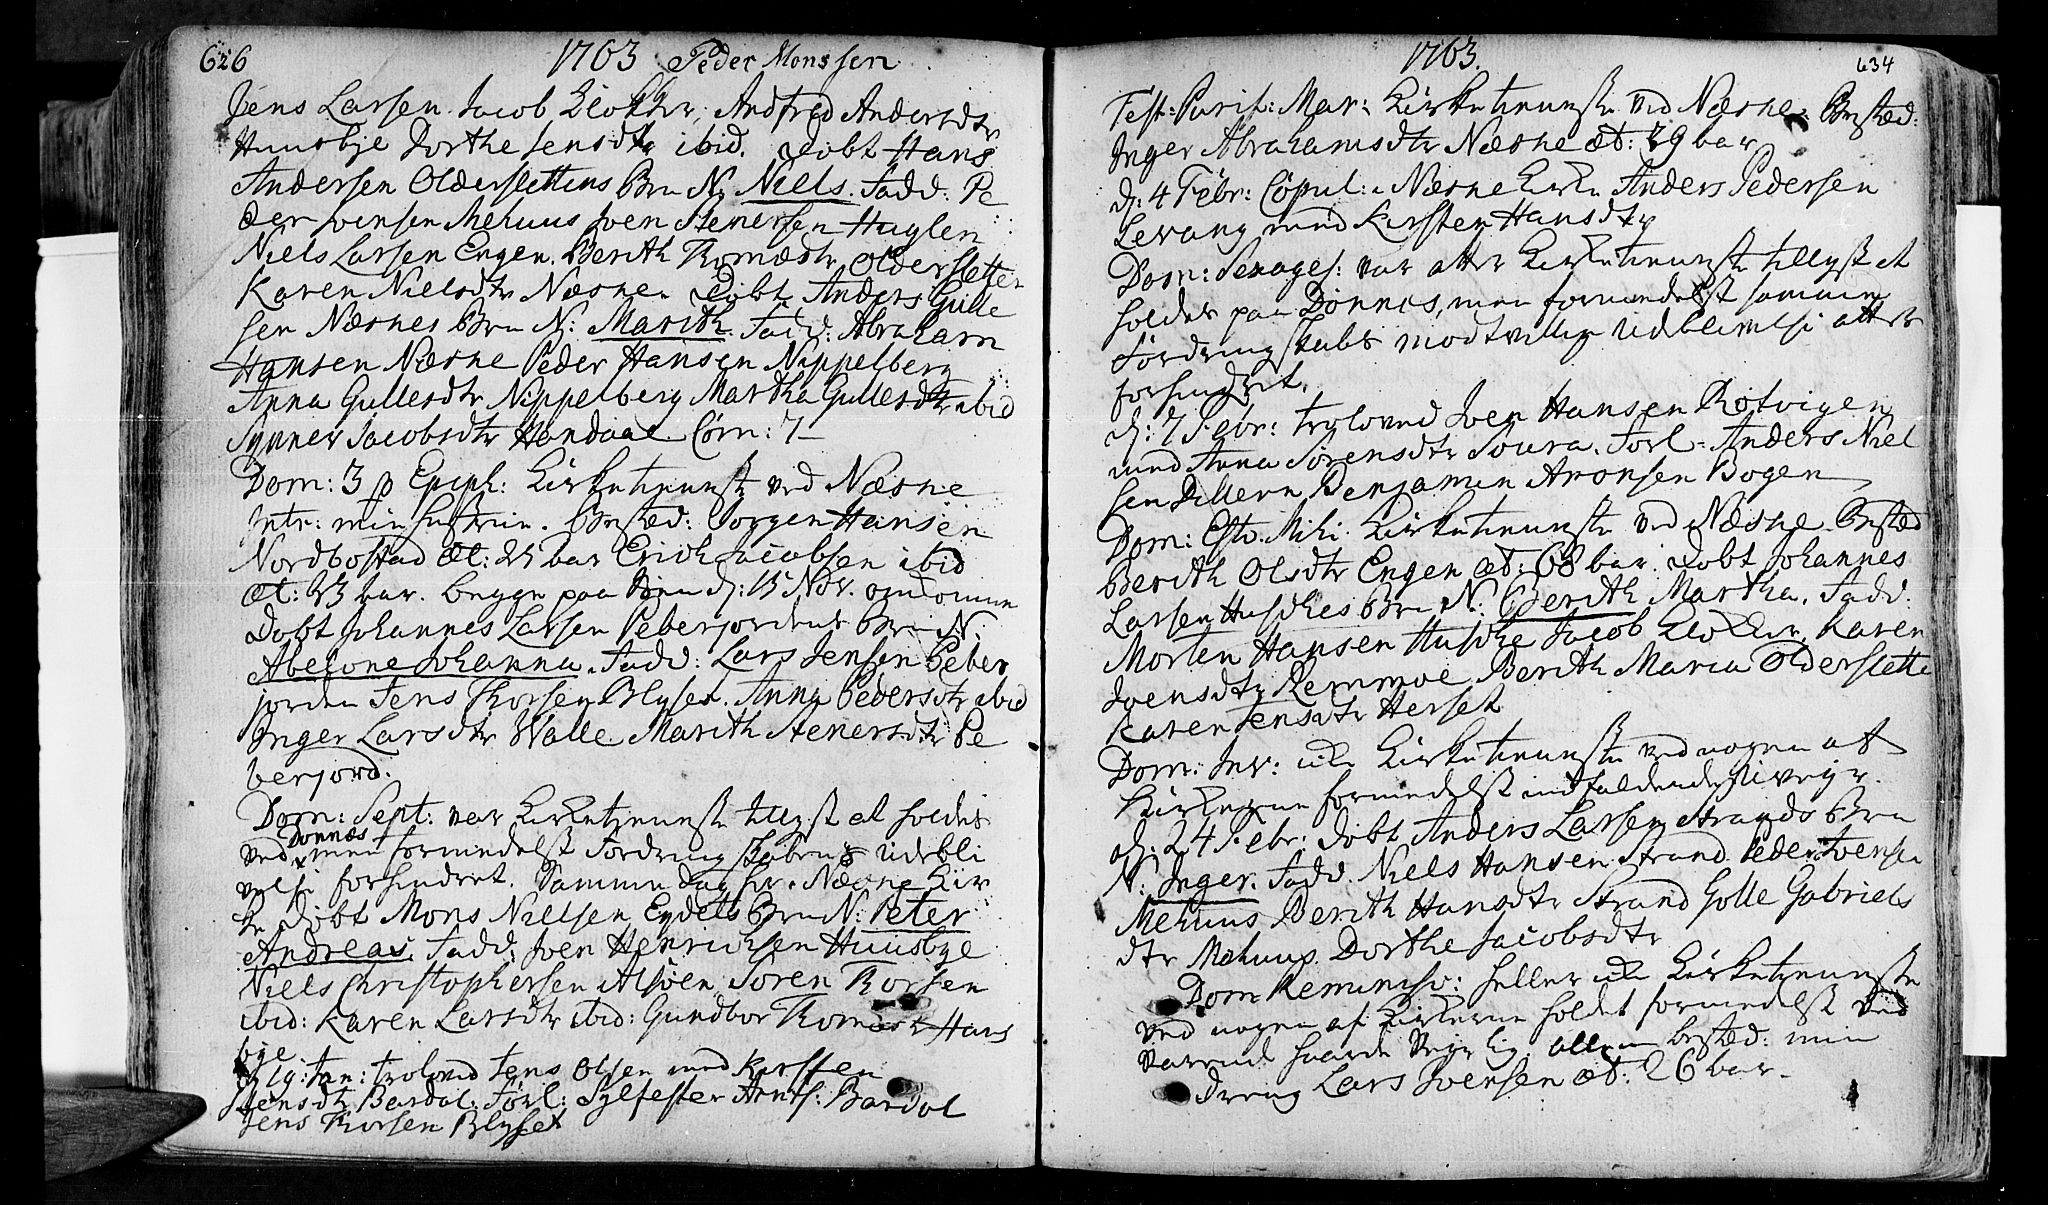 626
1763 Peder Monssen
Jens Larsen Jacob Klokker, Andfred Andersdtr
Huusbye Dorthe Jensdtr ibid. Døbt Hans
Andersen Olderslettens Brn N. Niels. Fadd: Pe
der Joensen Mehuus Joen Stenersen Huglen
Niels Larsen Engen. Berith Thomædtr Oldersletten
Karen Nielsdtr Næsne. Døbt Anders Gulle
sen Næsnes Brn N: Marith. Fadd: Abraham
Hansen Næsne Peder Hansen Nippelberg
Anna Gullesdtr Nippelberg Martha Gullesdtr ibid
Synner Jacobsdtr Handaae. Com: 7
Dom: 3 p Epiph: Kirketienneste ved Næsne
Intr: min hustrue. Bested: Jørgen Hansen
Nordbostad æt: 25 bar Erich Jacobsen ibid
æt: 23 bar. begge paa Søen d: 15 Nov. omkomne
Døbt Johannes Larsen Peberjordens Brn N:
Abelone Johanna. Fadd: Lars Jensen Peber
jorden Jens Thorsen Blyset. Anna Pedersdtr ibid
Inger Larsdtr Walle Marith Stenersdtr Pe
berjord.
Dom: Sept: var Kirketienneste tillyst at holdes
ved Dønnæs men formedelst Fordringskabens udebli
velse forhindret. Samme dag her i Næsne Kir
ke Døbt Mons Nielsen Eydets Brn N: Peter
Andreas. Fadd: Joen Henrichsen Huusbye
Niels Christophersen Alsøen Søren Thorsen
ibid: Karen Larsdtr ibid: Gundbor Thomædtr Huus
bye
d 19: Jan: trolovid Jens Olsen med Kirsten
Jensdtr Bardal. Forl: Sylfester Arnts: Bardal
Jens Thorsen Blyset
1763.
634
Fest: Purif: Mar: Kirketienneste ved Næsne. Bested:
Inger Abrahamsdtr Næsne æt: 29 bar
d: 4 Febr: Copul: i Næsne Kirke Anders Pedersen
Levang med Kirsten Hansdtr
Dom: Sexages: var atter Kirketienneste tillyst at
holdes paa Dønnes, men formedelst samme
Fordringskabs modtvillige udeblivelse atter
forhindret.
d: 7 Febr: troloved Joen Hansen Rotvigen
med Anna Sørensdtr Soura. Forl: Anders Niel
sen Dillern Benjamin Aronsen Bogen
Dom: Esto Mihi Kirketienneste ved Næsne Bested
Berith Olsdtr Engen æt: 68 bar. Døbt Johannes
Larsen Huschis Brn N: Berith Martha. Fadd.
Morten Hansen Husche Jacob Klokker, Karen
Joensdtr Remmoe Berith Maria Oldersletten
Karen Jensdtr Herset
Dom: Inv: icke Kirketienneste ved nogen af
Kirkerne formedelst indfaldende Uveyr.
d: 24 Febr: døbt Anders Larsen Strands Brn
N: Inger. Fadd. Niels Hansen Strand Peder Joensen
Mehuus Berith Hansdtr Strand Golle Gabriels
dtr Mehuus Dorthe Jacobsdtr
Dom Reminisc: heller icke Kirketienneste
ved nogen af Kirkerne holdet formedelst ved
varende haarde Veyrlig. allene bested: min
Dreng Lars Joensen æt: 26 bar.